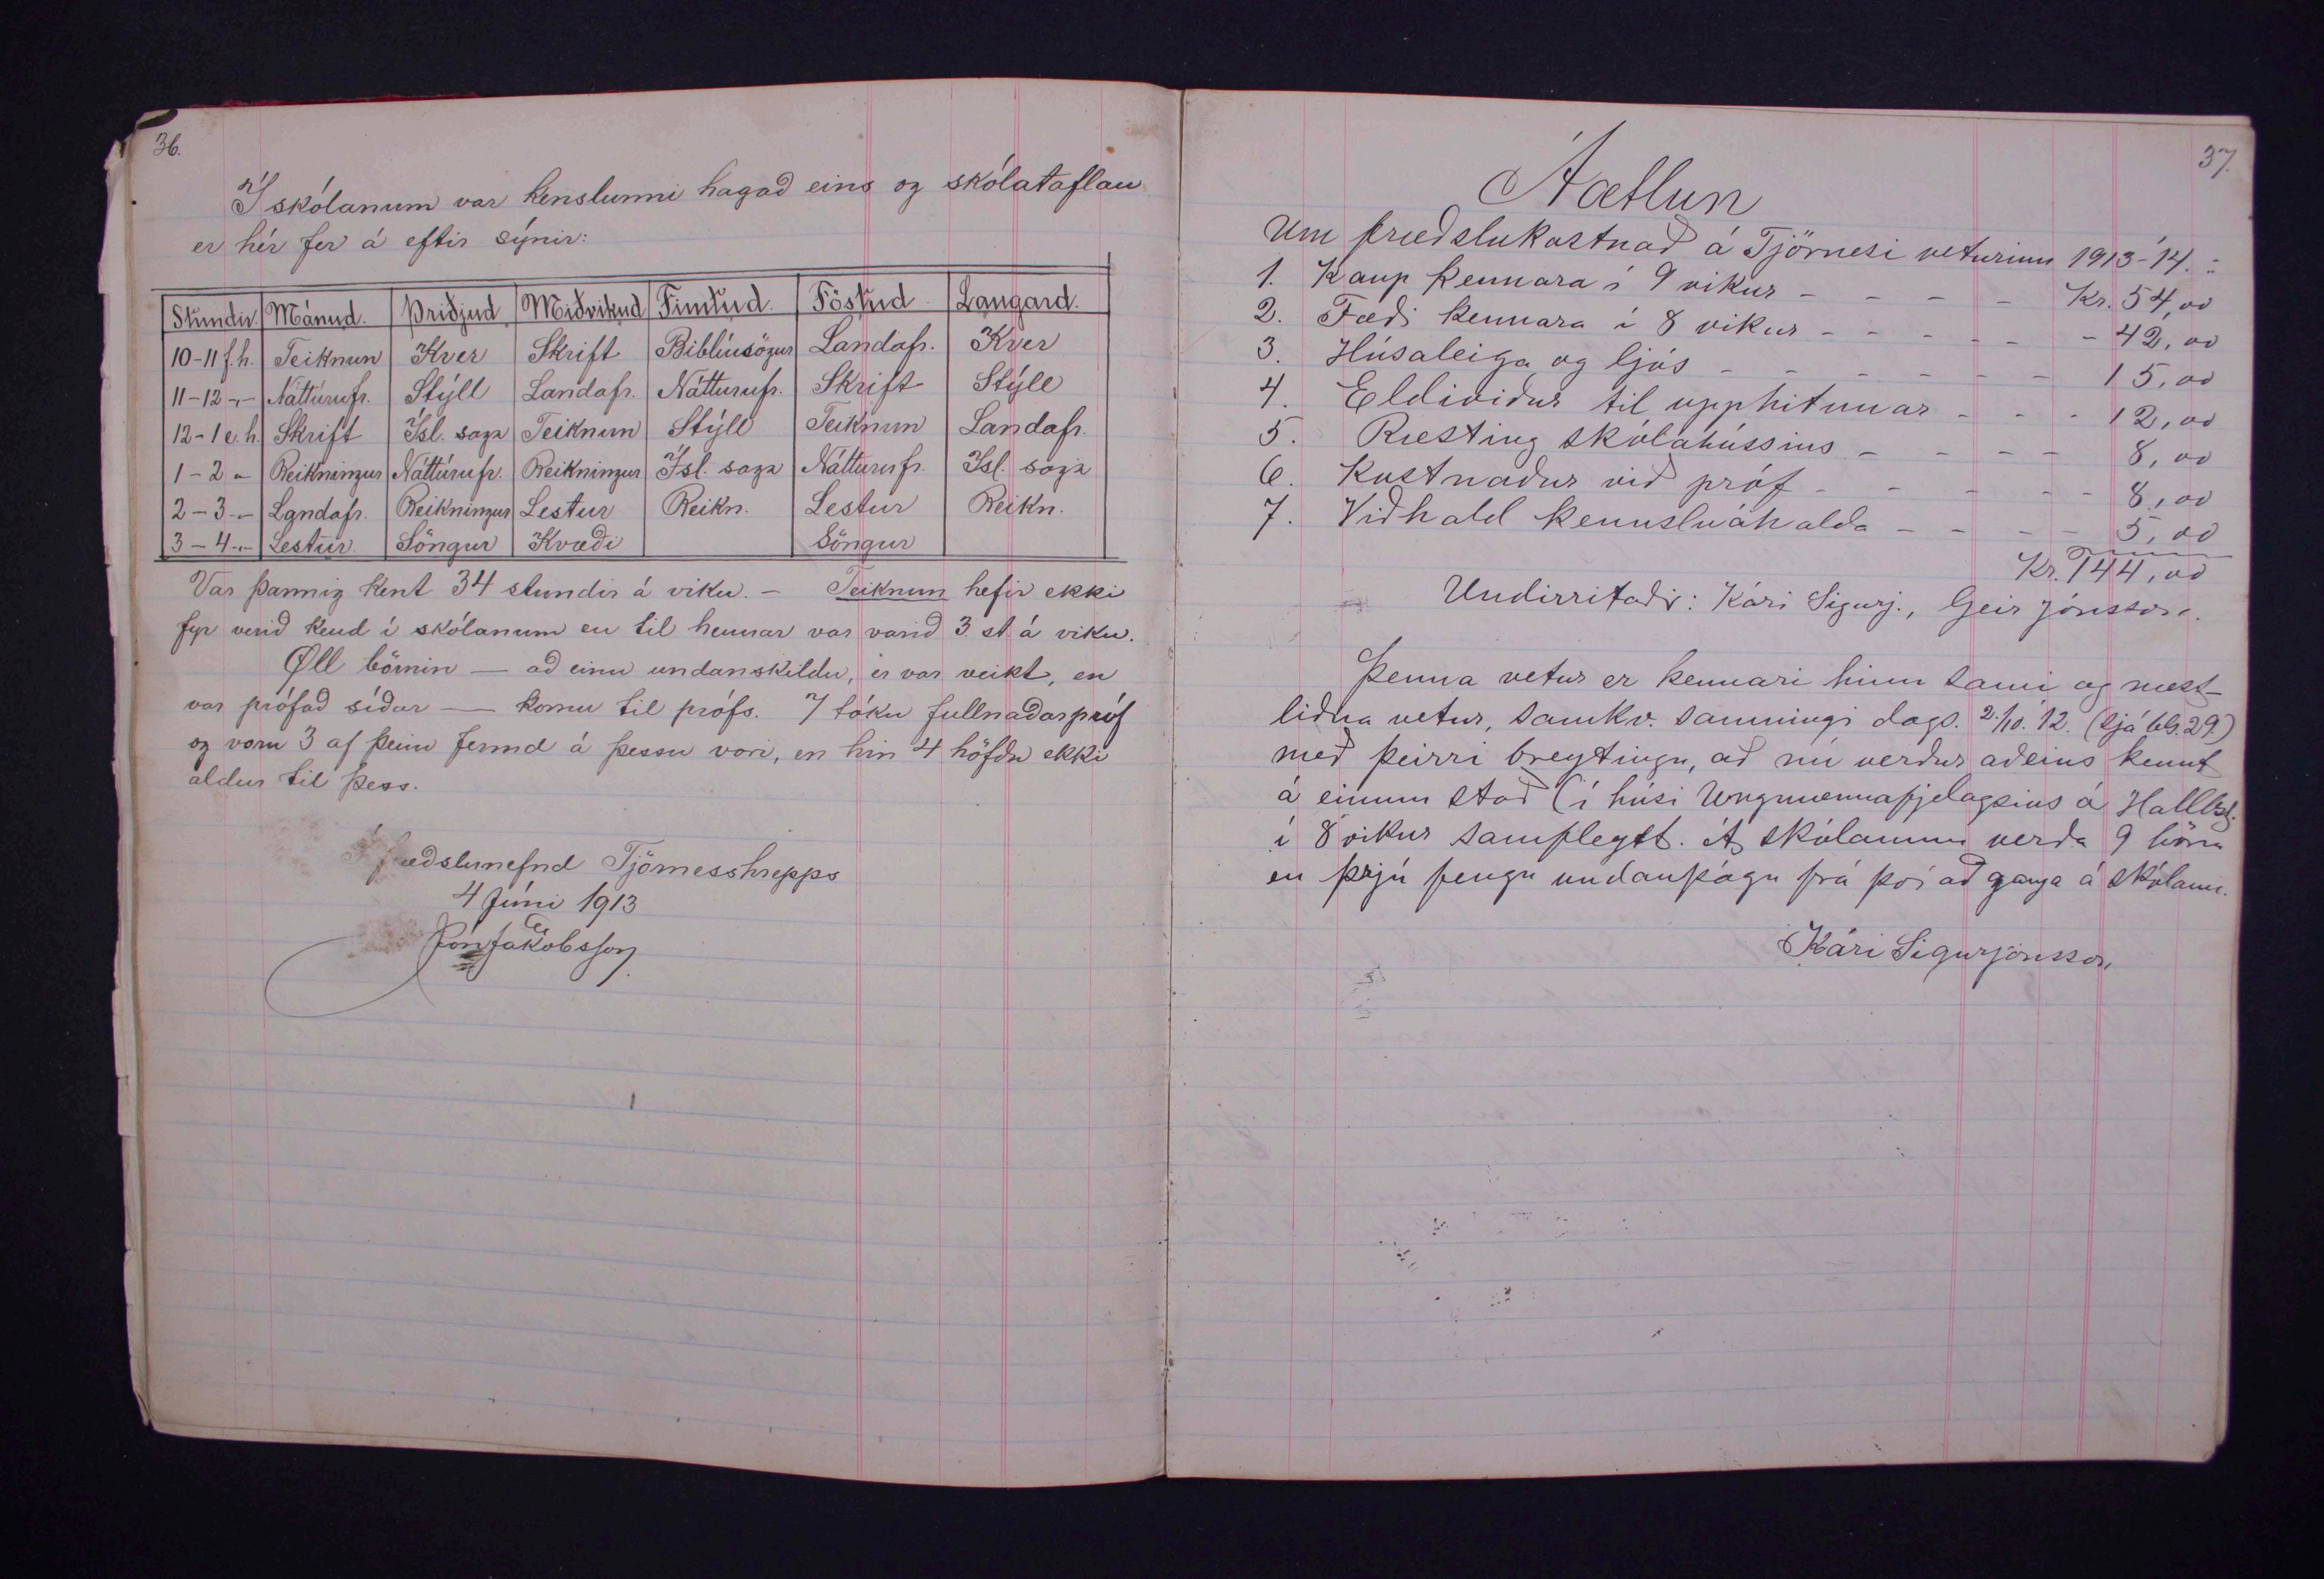 36.
Í skólanum var kenslunni hagað eins og skólataflan
er hér fer á eftir sýnir:
Stundir. Mánud. Þriðjud. Miðvikud Fimtud. Föstud Laugard.
10-11 f.h. Teiknun Kver Skrift Biblíusögur Landafr. Kver
11-12 -"- Náttúrufr. Stýll Landafr. Nátturufr. Skrift Stýll
12-1 e.h. Skrift Ísl. saga Teiknun Stýll Teiknun Landafr.
1-2 -"- Reikningur Náttúrufr. Reikningur Ísl. saga Nátturufr. Ísl. saga
2-3 -"- Landafr. Reikningur Lestur Reikn. Lestur Reikn.
3-4 -"- Lestur Söngur Kvæði Söngur
Var þannig kent 34 stundir á viku. - Teiknun hefir ekki
fyr verið kend í skólanum en til hennar var varið 3 st. á viku.
Öll börnin — að einu undanskildu, er var veikt, en
var prófað síðar — komu til prófs. 7 tóku fullnaðarpróf
og voru 3 af þeim fermd á þessu vori, en hin 4 höfðu ekki
aldur til þess.
Í fræðslunefnd Tjörnesshrepps
4 Júni 1913
Jón Jakobsson
37.
Áætlun
Um fræðslukostnað á Tjörnesi veturinn 1913-'14. :
1. Kaup kennara í 9 vikur - - - - Kr. 54,00
2. Fæði kennara í 8 vikur - - - - - - 42,00
3. Húsaleiga og ljós - - - - - - 15,00
4. Eldiviður til upphitunar - - - 12,00
5. Ræsting skólahússins - - - - 8,00
6. Kostnaður við próf - - - - - 8,00
7. Viðhald kennsluáhalda - - - - 5,00
Kr. 144,00
Undirritaðir: Kári Sigurj., Geir Jónsson.
Þenna vetur er kennari hinn sami og næst-
liðna vetur, samkv. samningi dags. 2/10. 12. (sjá bls. 29.)
með þeirri breytingu, að nú verður aðeins kennt
á einum stað (í húsi Ungmennafjelagsins á Hallbj.
í 8 vikur samfleytt. Á skólanum verða 9 börn
en þrjú fengu undanþágu frá því að ganga á skólann.
Kári Sigurjónsson